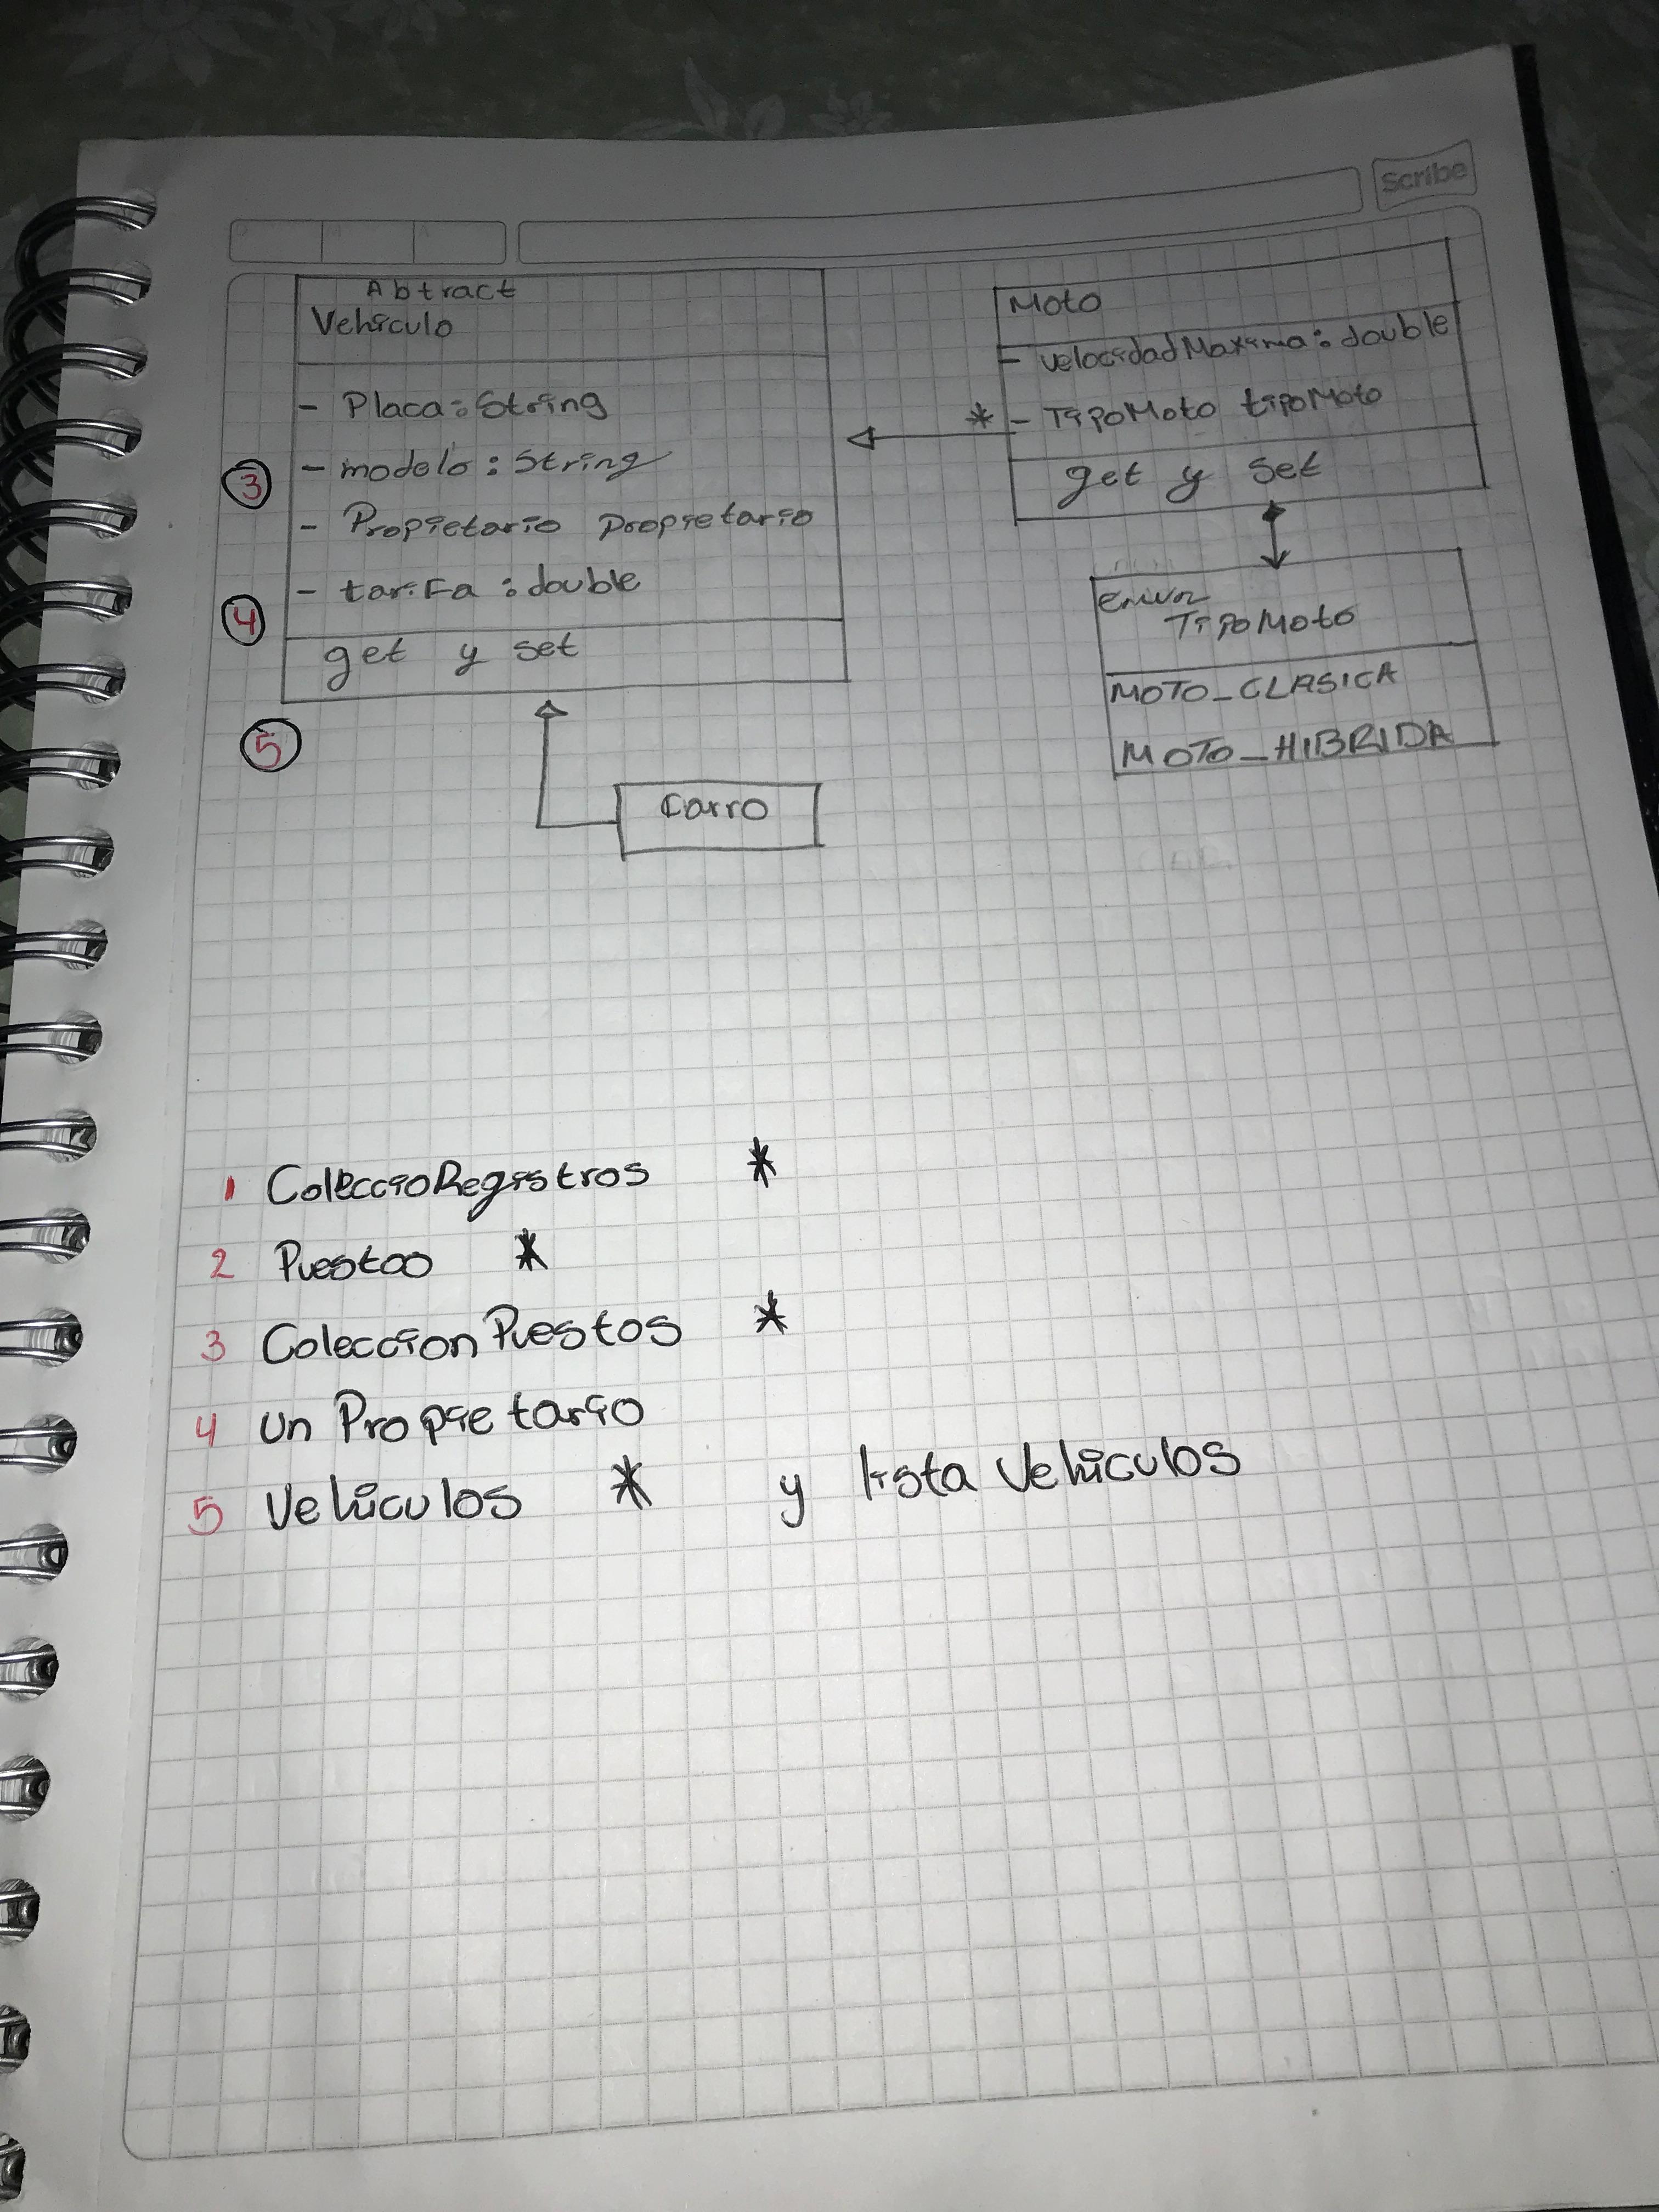 Scribe
Abtract
Vehiculo
- Placa: String
- modelo: String
- Propietario propietario
- tarifa: double
get y set
3
4
5
Moto
- velocidadMaxima: double
* - TipoMoto tipoMoto
get y set
enum
TipoMoto
MOTO_CLASICA
MOTO_HIBRIDA
Carro
1 ColeccioRegistros *
2 Puestoo *
3 ColeccionPuestos *
4 un Propietario
5 Vehiculos * y lista Vehiculos